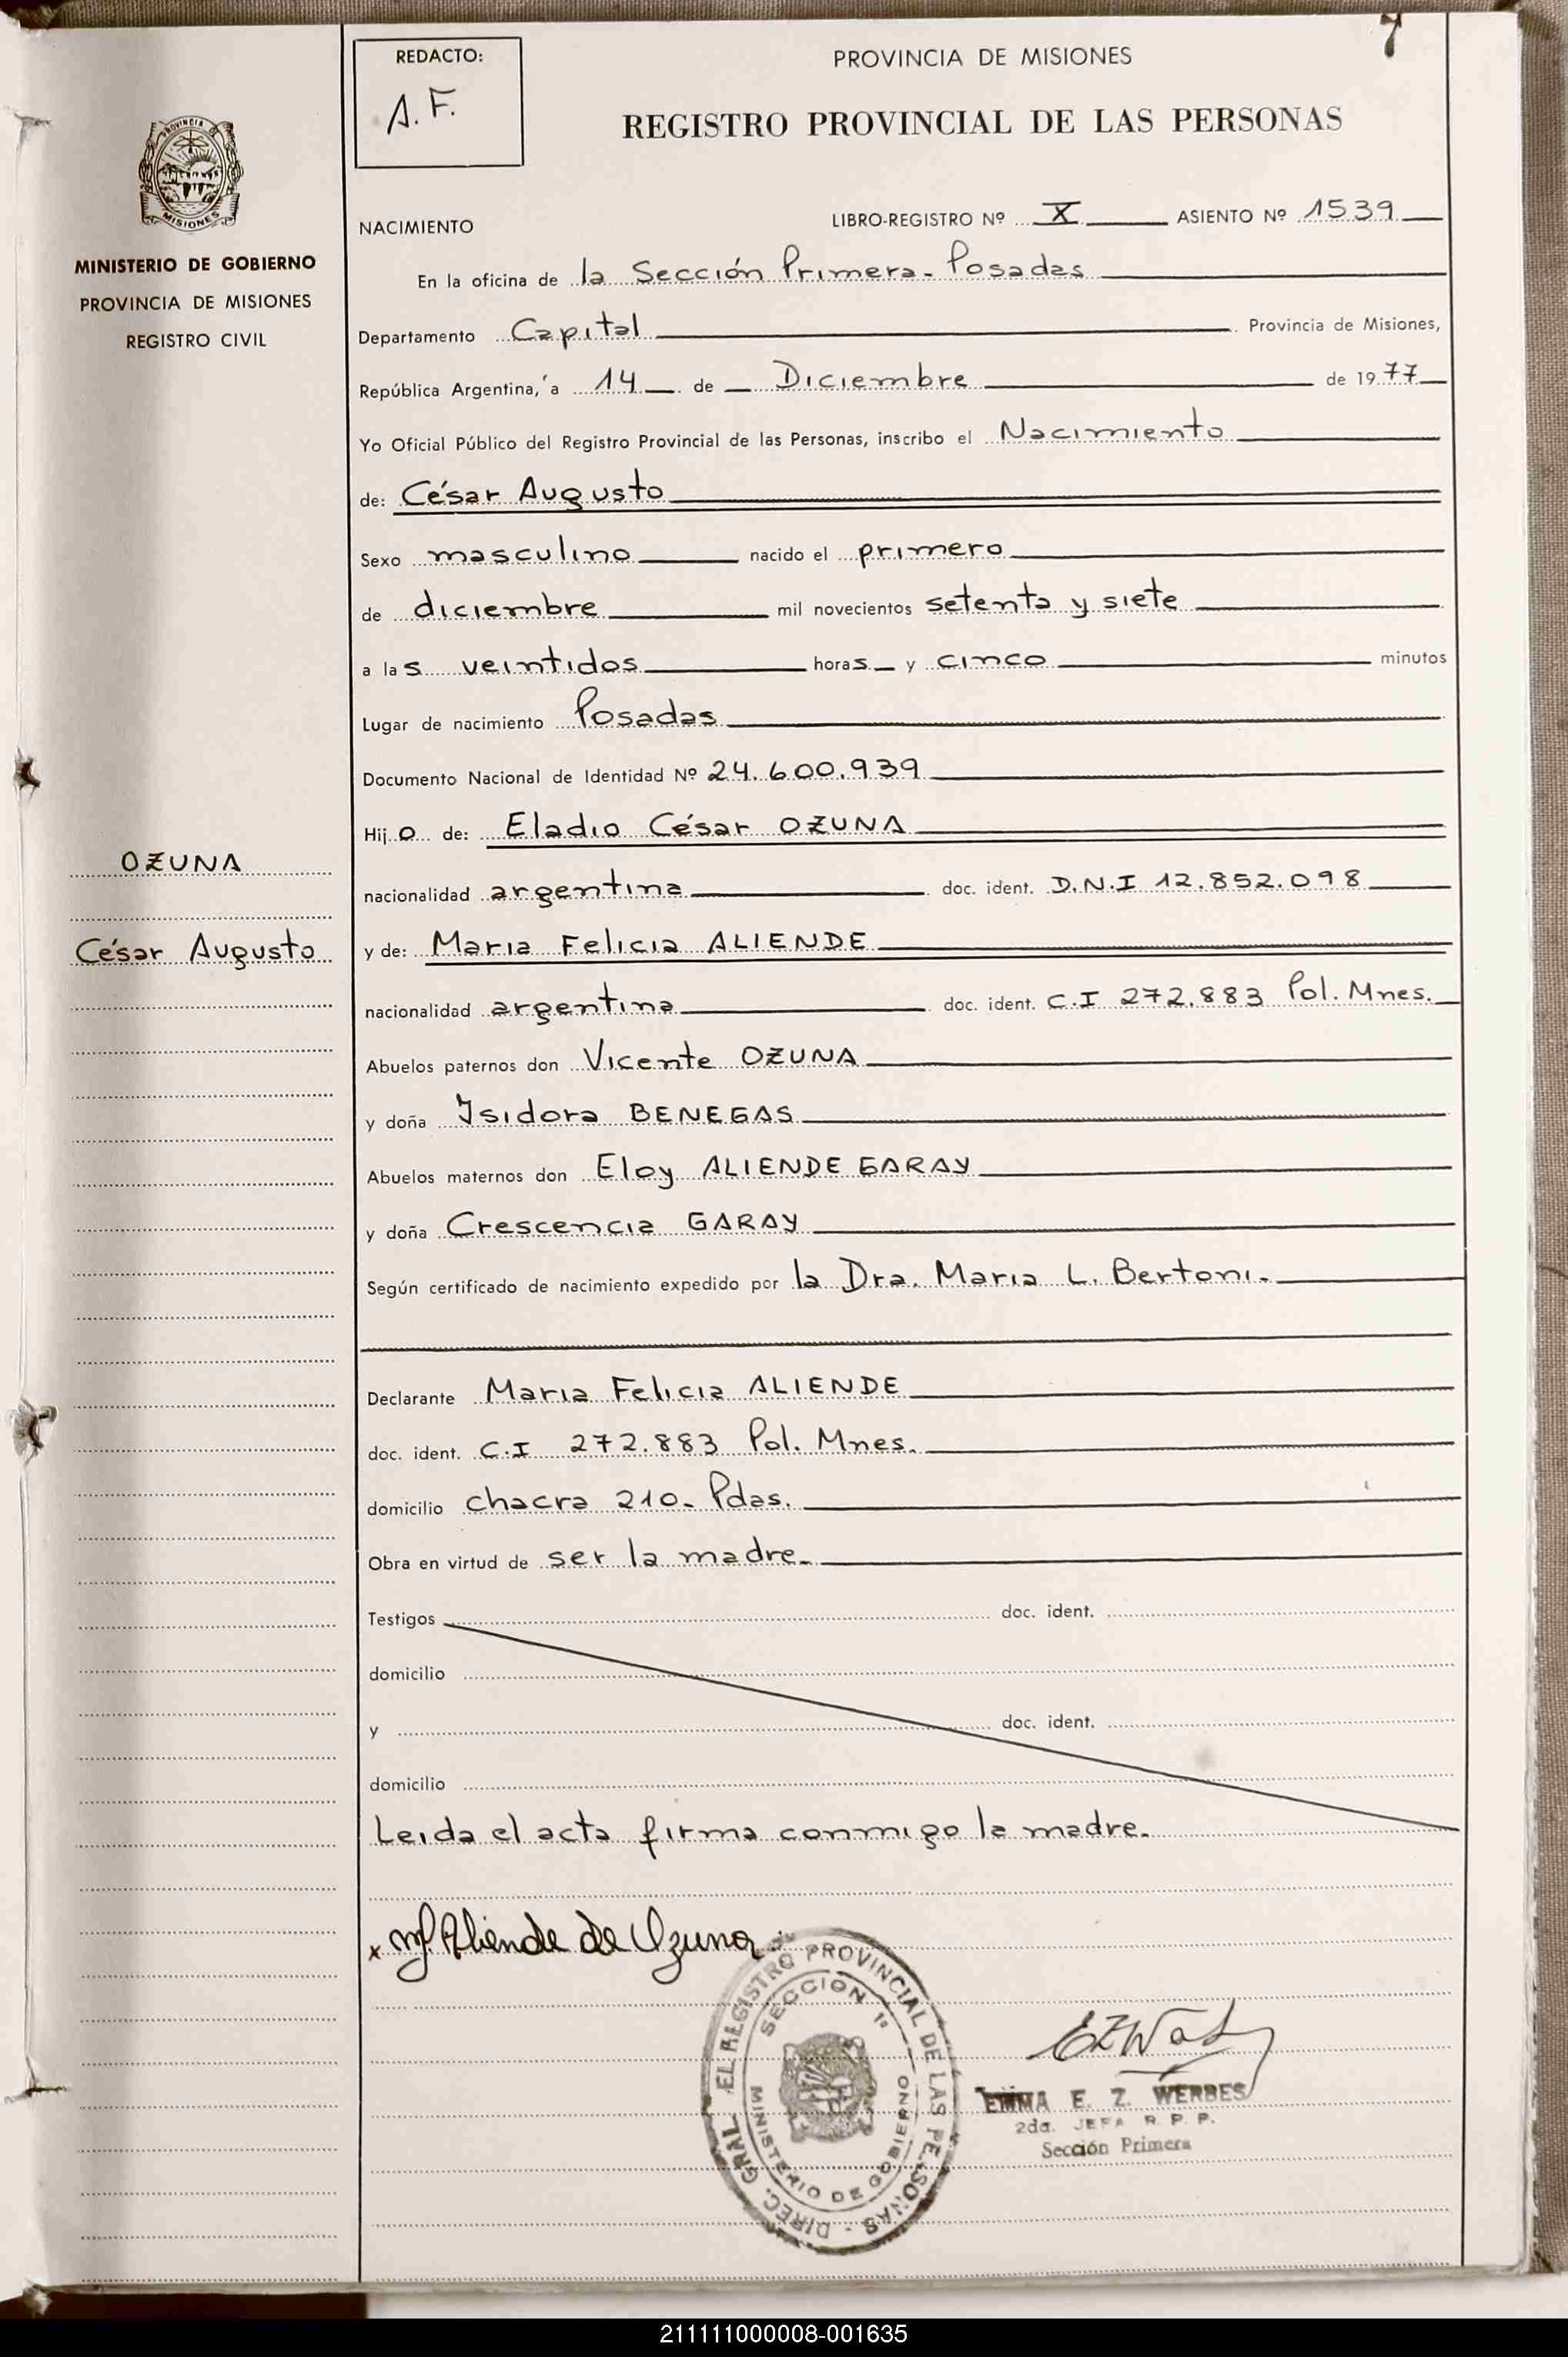 7
REDACTO:
A. F.
PROVINCIA DE MISIONES
REGISTRO PROVINCIAL DE LAS PERSONAS
PROVINCIA DE
MISIONES
MINISTERIO DE GOBIERNO
PROVINCIA DE MISIONES
REGISTRO CIVIL
NACIMIENTO LIBRO-REGISTRO Nº X ASIENTO Nº 1539
En la oficina de la Sección Primera - Posadas
Departamento Capital Provincia de Misiones,
República Argentina, a 14 de Diciembre de 1977
Yo Oficial Público del Registro Provincial de las Personas, inscribo el Nacimiento
de: César Augusto
Sexo masculino nacido el primero
de diciembre mil novecientos setenta y siete
a las veintidos horas y cinco minutos
Lugar de nacimiento Posadas
Documento Nacional de Identidad Nº 24.600.939
Hijo de: Eladio César OZUNA
OZUNA
nacionalidad argentina doc. ident. D.N.I 12.852.098
César Augusto
y de: Maria Felicia ALIENDE
nacionalidad argentina doc. ident. C.I 272.883 Pol. Mnes.
Abuelos paternos don Vicente OZUNA
y doña Isidora BENEGAS
Abuelos maternos don Eloy ALIENDE GARAY
y doña Crescencia GARAY
Según certificado de nacimiento expedido por la Dra. Maria L. Bertoni.
Declarante Maria Felicia ALIENDE
doc. ident. C.I 272.883 Pol. Mnes.
domicilio chacra 210- Pdas.
Obra en virtud de ser la madre.
Testigos doc. ident.
domicilio
y doc. ident.
domicilio
Leida el acta firma conmigo la madre.
x M.F. Aliende de Ozuna
DIREC. GRAL. EL REGISTRO PROVINCIAL DE LAS PERSONAS -
SECCION 1ª
MINISTERIO DE GOBIERNO
EMMA E. Z. WERBES
2da. JEFA R. P. P.
Sección Primera
211111000008-001635